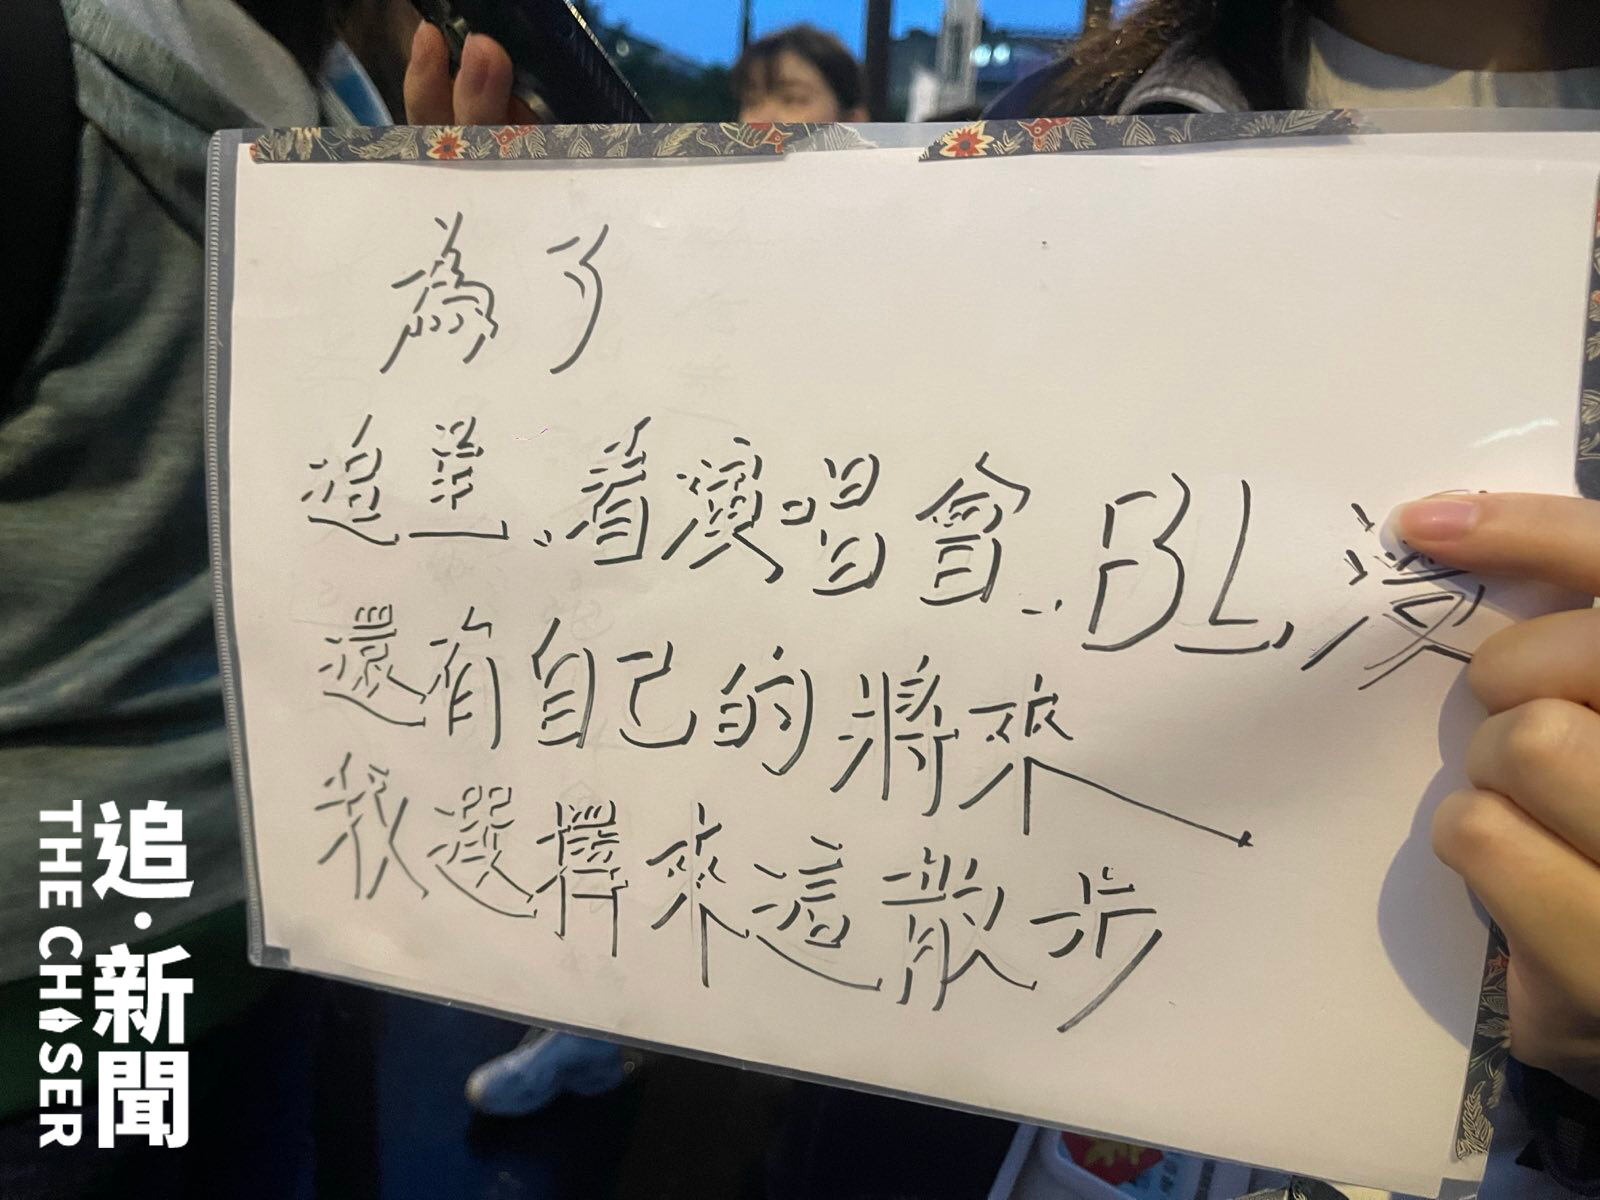 為了
追星、看演唱會、BL漫
還有自己的將來
我選擇來這散步
追·新聞
THE CHASER